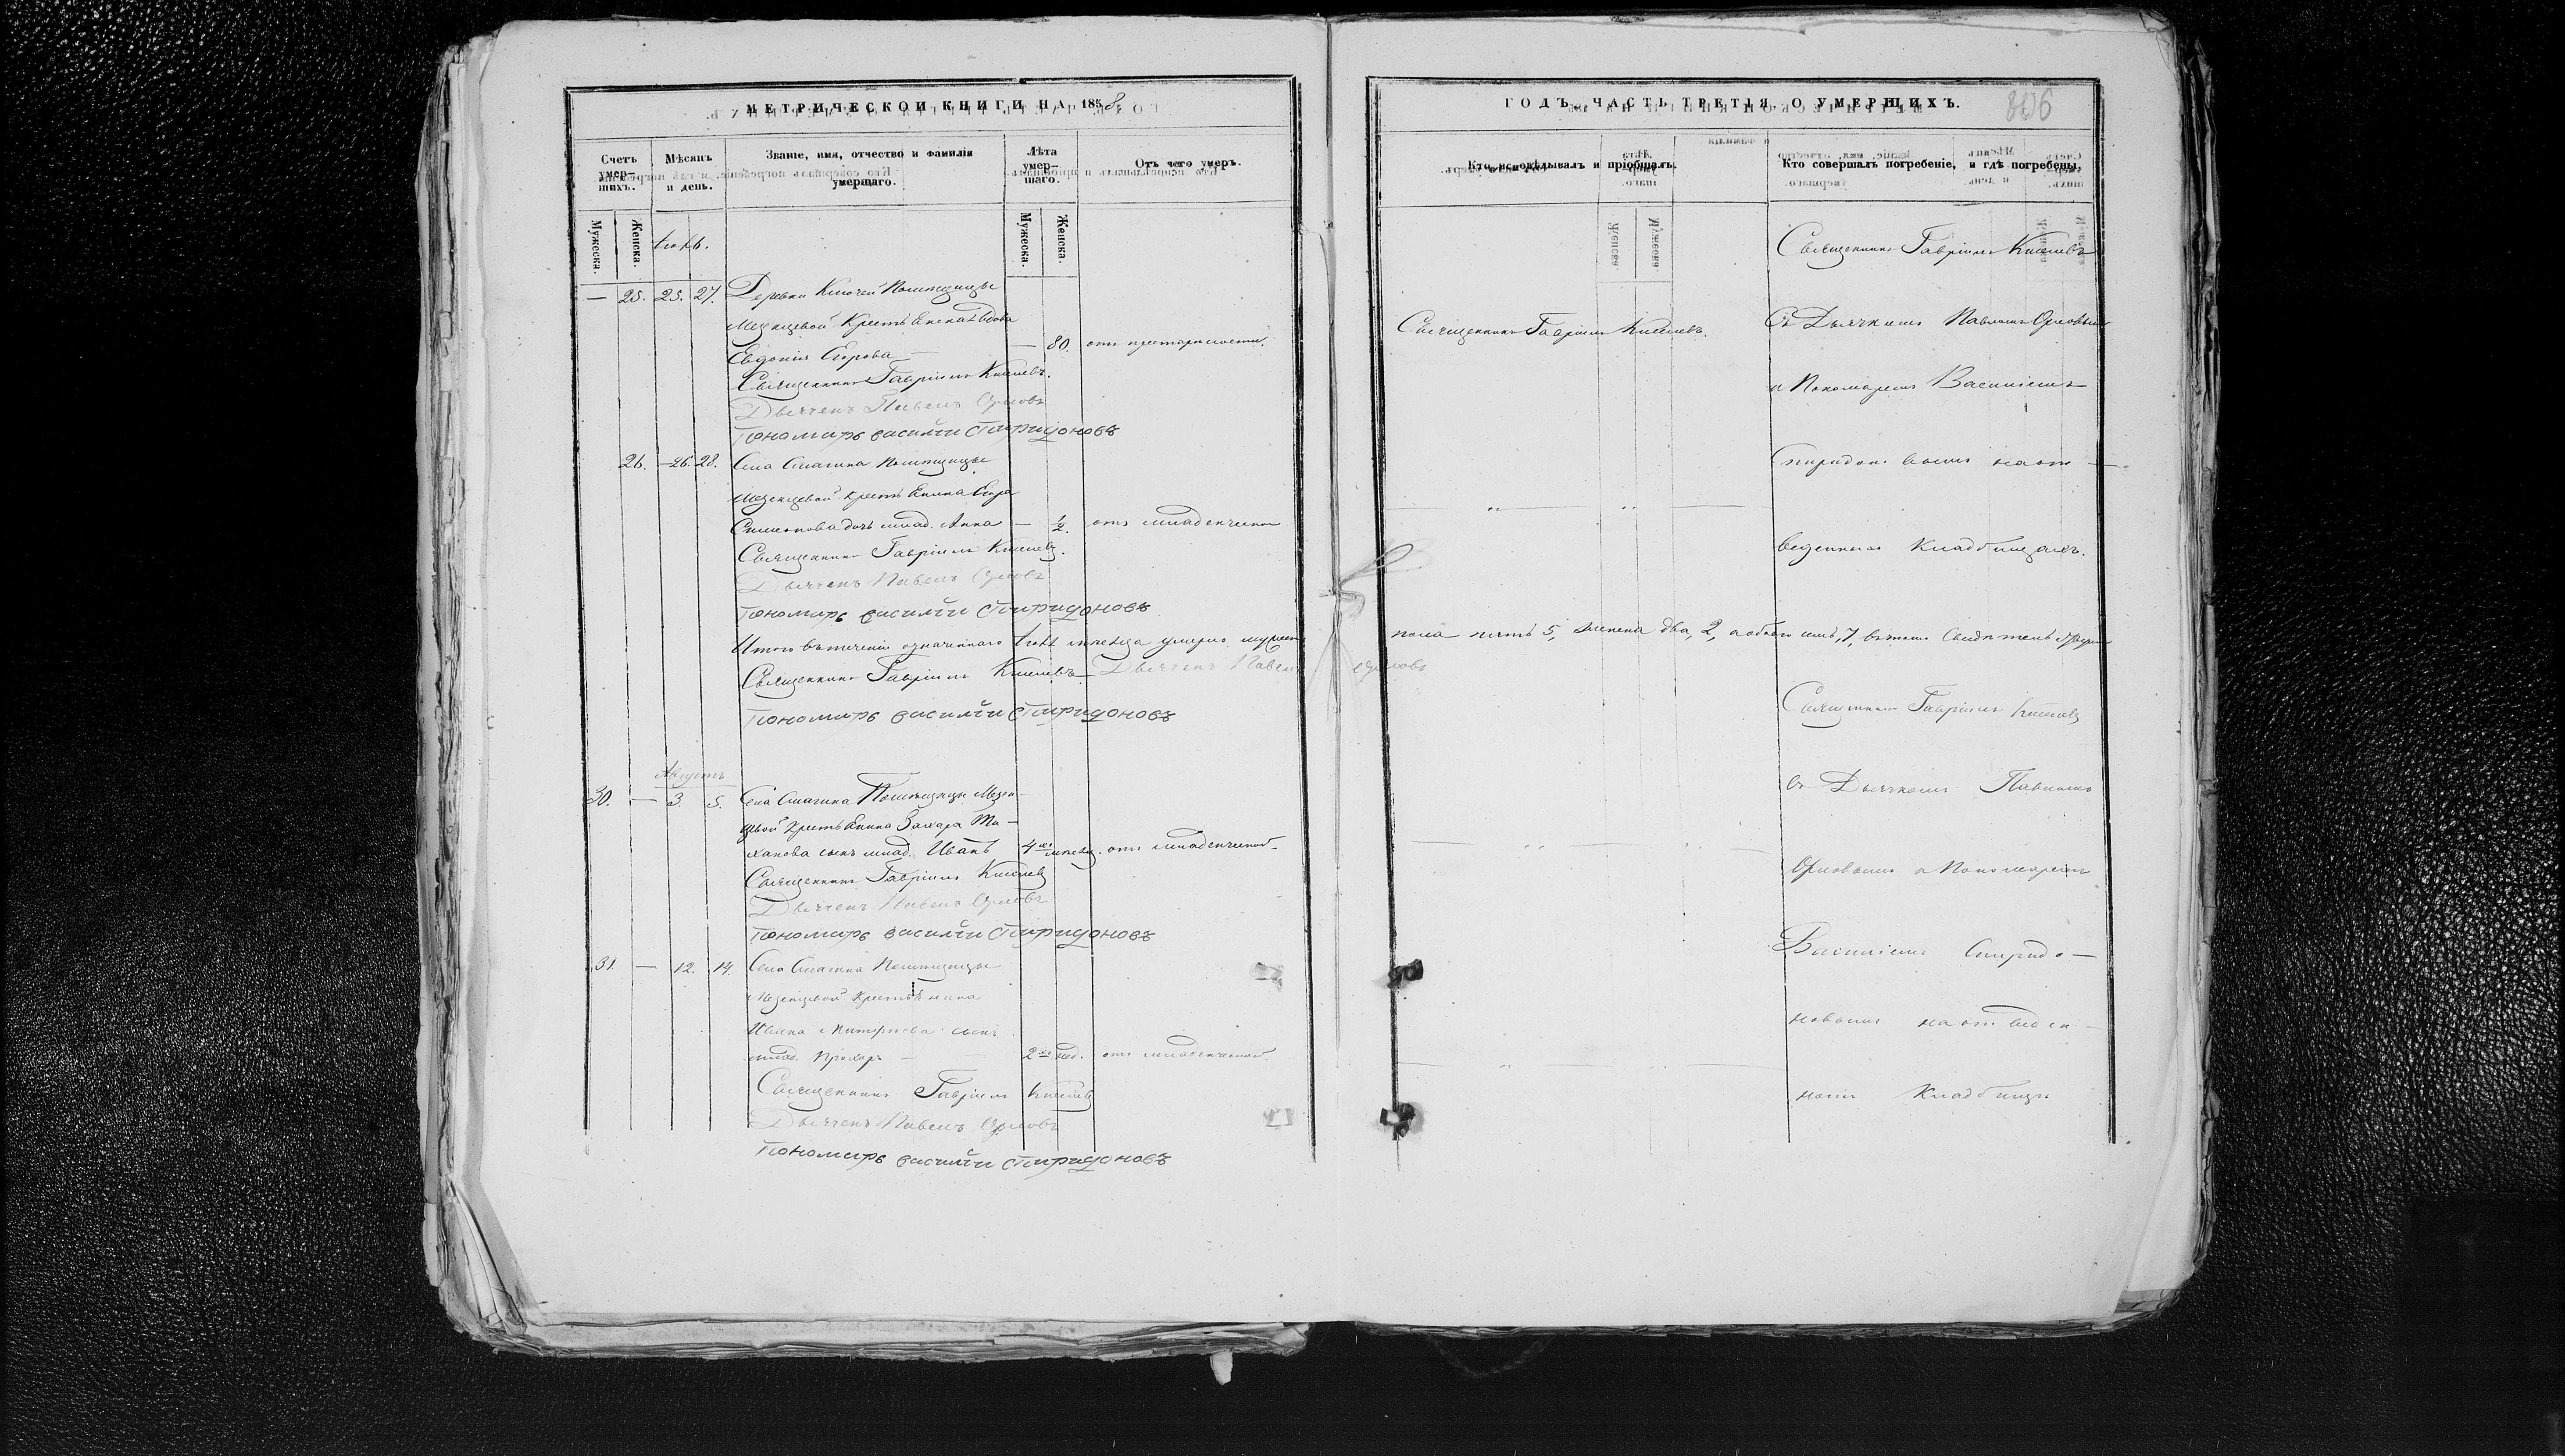 МЕТРИЧЕСКОЙ КНИГИ НА 1858
Счетъ умер-шихъ.
Мѣсяцъ и день.
Званіе, имя, отчество и фамилія умершаго.
Лѣта умер-шаго.
Отъ чего умеръ.
Мужеска.
Женска.
Мужеска.
Женска.
Іюль.
— 25. 25. 27. Деревни Ключей Помѣщицы
Мезенцевой Крестьянская вдова
Евдокія Егорова — — 80. отъ престарелости.
Священникъ Гавріилъ Киселевъ.
Дьячекъ Павелъ Орловъ
Пономарь Василій Спиридоновъ
26. — 26. 28. Села Смагина Помѣщицы
Мезенцевой Крестьянина Егора
Симонова дочь млад. Анна — ½. отъ младенческой
Священникъ Гавріилъ Киселевъ.
Дьячекъ Павелъ Орловъ
Пономарь Василій Спиридоновъ
Итого въ теченіи означеннаго Іюля мѣсяца умерло мужеска
Священникъ Гавріилъ Киселевъ Дьячекъ Павелъ Орловъ
Пономарь Василій Спиридоновъ
Августъ
30. — 3. 5. Села Смагина Помѣщицы Мезен-
цевой Крестьянина Захара
сынъ млад. Иванъ 4хъ мѣсяц. отъ младенческой
Священникъ Гавріилъ Киселевъ
Дьячекъ Павелъ Орловъ
Пономарь Василій Спиридоновъ
31. — 12. 14. Села Смагина Помѣщицы
Мезенцевой Крестьянина
Ивана сынъ
млад. Прохоръ — 2хъ нед. отъ младенческой.
Священникъ Гавріилъ Киселевъ
Дьячекъ Павелъ Орловъ
Пономарь Василій Спиридоновъ
ГОДЪ, ЧАСТЬ ТРЕТІЯ, О УМЕРШИХЪ.
806
Кто исповѣдывалъ и пріобщалъ.
Кто совершалъ погребеніе, и гдѣ погребены.
Священникъ Гавріилъ Киселевъ.
Священникъ Гавріилъ Киселевъ
Съ Дьячкомъ Павломъ Орловымъ
и Пономаремъ Василіемъ
Спиридоновымъ на от-
веденномъ Кладбищахъ.
пола пять 5, женска два, 2, а обоего семь, 7, въ томъ
Священникъ Гавріилъ Киселевъ
съ Дьячкомъ Павломъ
Орловымъ и Пономаремъ
Василіемъ Спиридо-
новымъ на отведен-
номъ Кладбищѣ